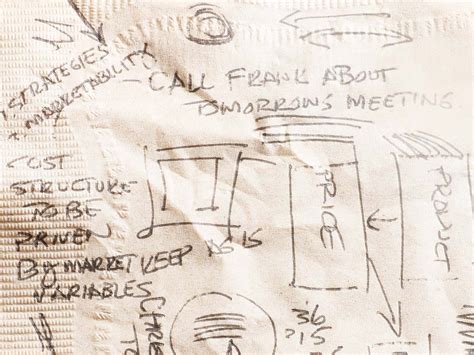 STRATEGIES
+ MARKETABILITY
- CALL FRANK ABOUT
TOMORROWS MEETING.
COST
STRUCTURE
TO BE
DRIVEN
BY MARKET KEEP
VARIABLES
PRICE
PRODUCT
15
36